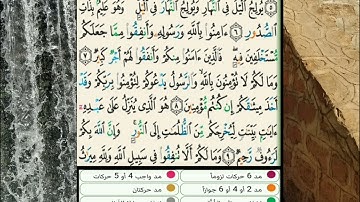 يُولِجُ ٱلَّيْلَ فِى ٱلنَّهَارِ وَيُولِجُ ٱلنَّهَارَ فِى ٱلَّيْلِ ۚ وَهُوَ عَلِيمٌۢ بِذَاتِ
ٱلصُّدُورِ ٦ ءَامِنُوا۟ بِٱللَّهِ وَرَسُولِهِۦ وَأَنفِقُوا۟ مِمَّا جَعَلَكُم
مُّسْتَخْلَفِينَ فِيهِ ۖ فَٱلَّذِينَ ءَامَنُوا۟ مِنكُمْ وَأَنفَقُوا۟ لَهُمْ أَجْرٌ كَبِيرٌ ٧
وَمَا لَكُمْ لَا تُؤْمِنُونَ بِٱللَّهِ ۙ وَٱلرَّسُولُ يَدْعُوكُمْ لِتُؤْمِنُوا۟ بِرَبِّكُمْ وَقَدْ
أَخَذَ مِيثَـٰقَكُمْ إِن كُنتُم مُّؤْمِنِينَ ٨ هُوَ ٱلَّذِى يُنَزِّلُ عَلَىٰ عَبْدِهِۦٓ
ءَايَـٰتٍۭ بَيِّنَـٰتٍ لِّيُخْرِجَكُم مِّنَ ٱلظُّلُمَـٰتِ إِلَى ٱلنُّورِ ۚ وَإِنَّ ٱللَّهَ بِكُمْ
لَرَءُوفٌ رَّحِيمٌ ٩ وَمَا لَكُمْ أَلَّا تُنفِقُوا۟ فِى سَبِيلِ ٱللَّهِ وَلِلَّهِ مِيرَٰثُ
مد 6 حركات لزوماً مد واجب 4 أو 5 حركات
مد 2 أو 4 أو 6 جوازاً مد حركتان